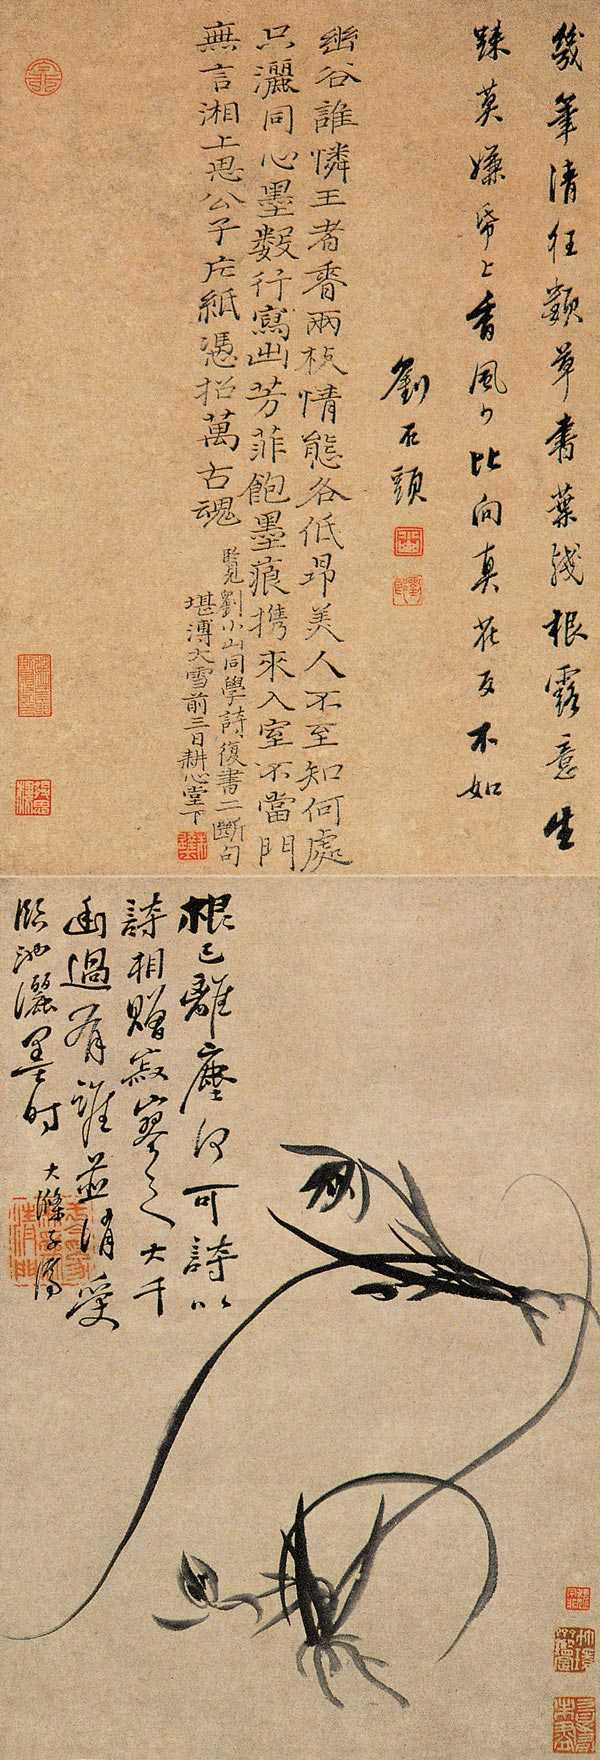 幾筆清狂類草書葉殘根露意生
疎莫嫌帋上香風少比向真花反不如
劉石頭
幽谷誰憐王者香兩枝情態各低昂美人不至知何處
只灑同心墨數行寫出芳菲飽墨痕携來入室不當門
無言湘上思公子片紙憑招萬古魂
劉小山同學詩復書二斷句
堪溥大雪前三日耕心堂下
根已離塵何可詩以
詩相贈寂寥之大千
香過有誰並消受
臨池灑墨時
大滌子濟